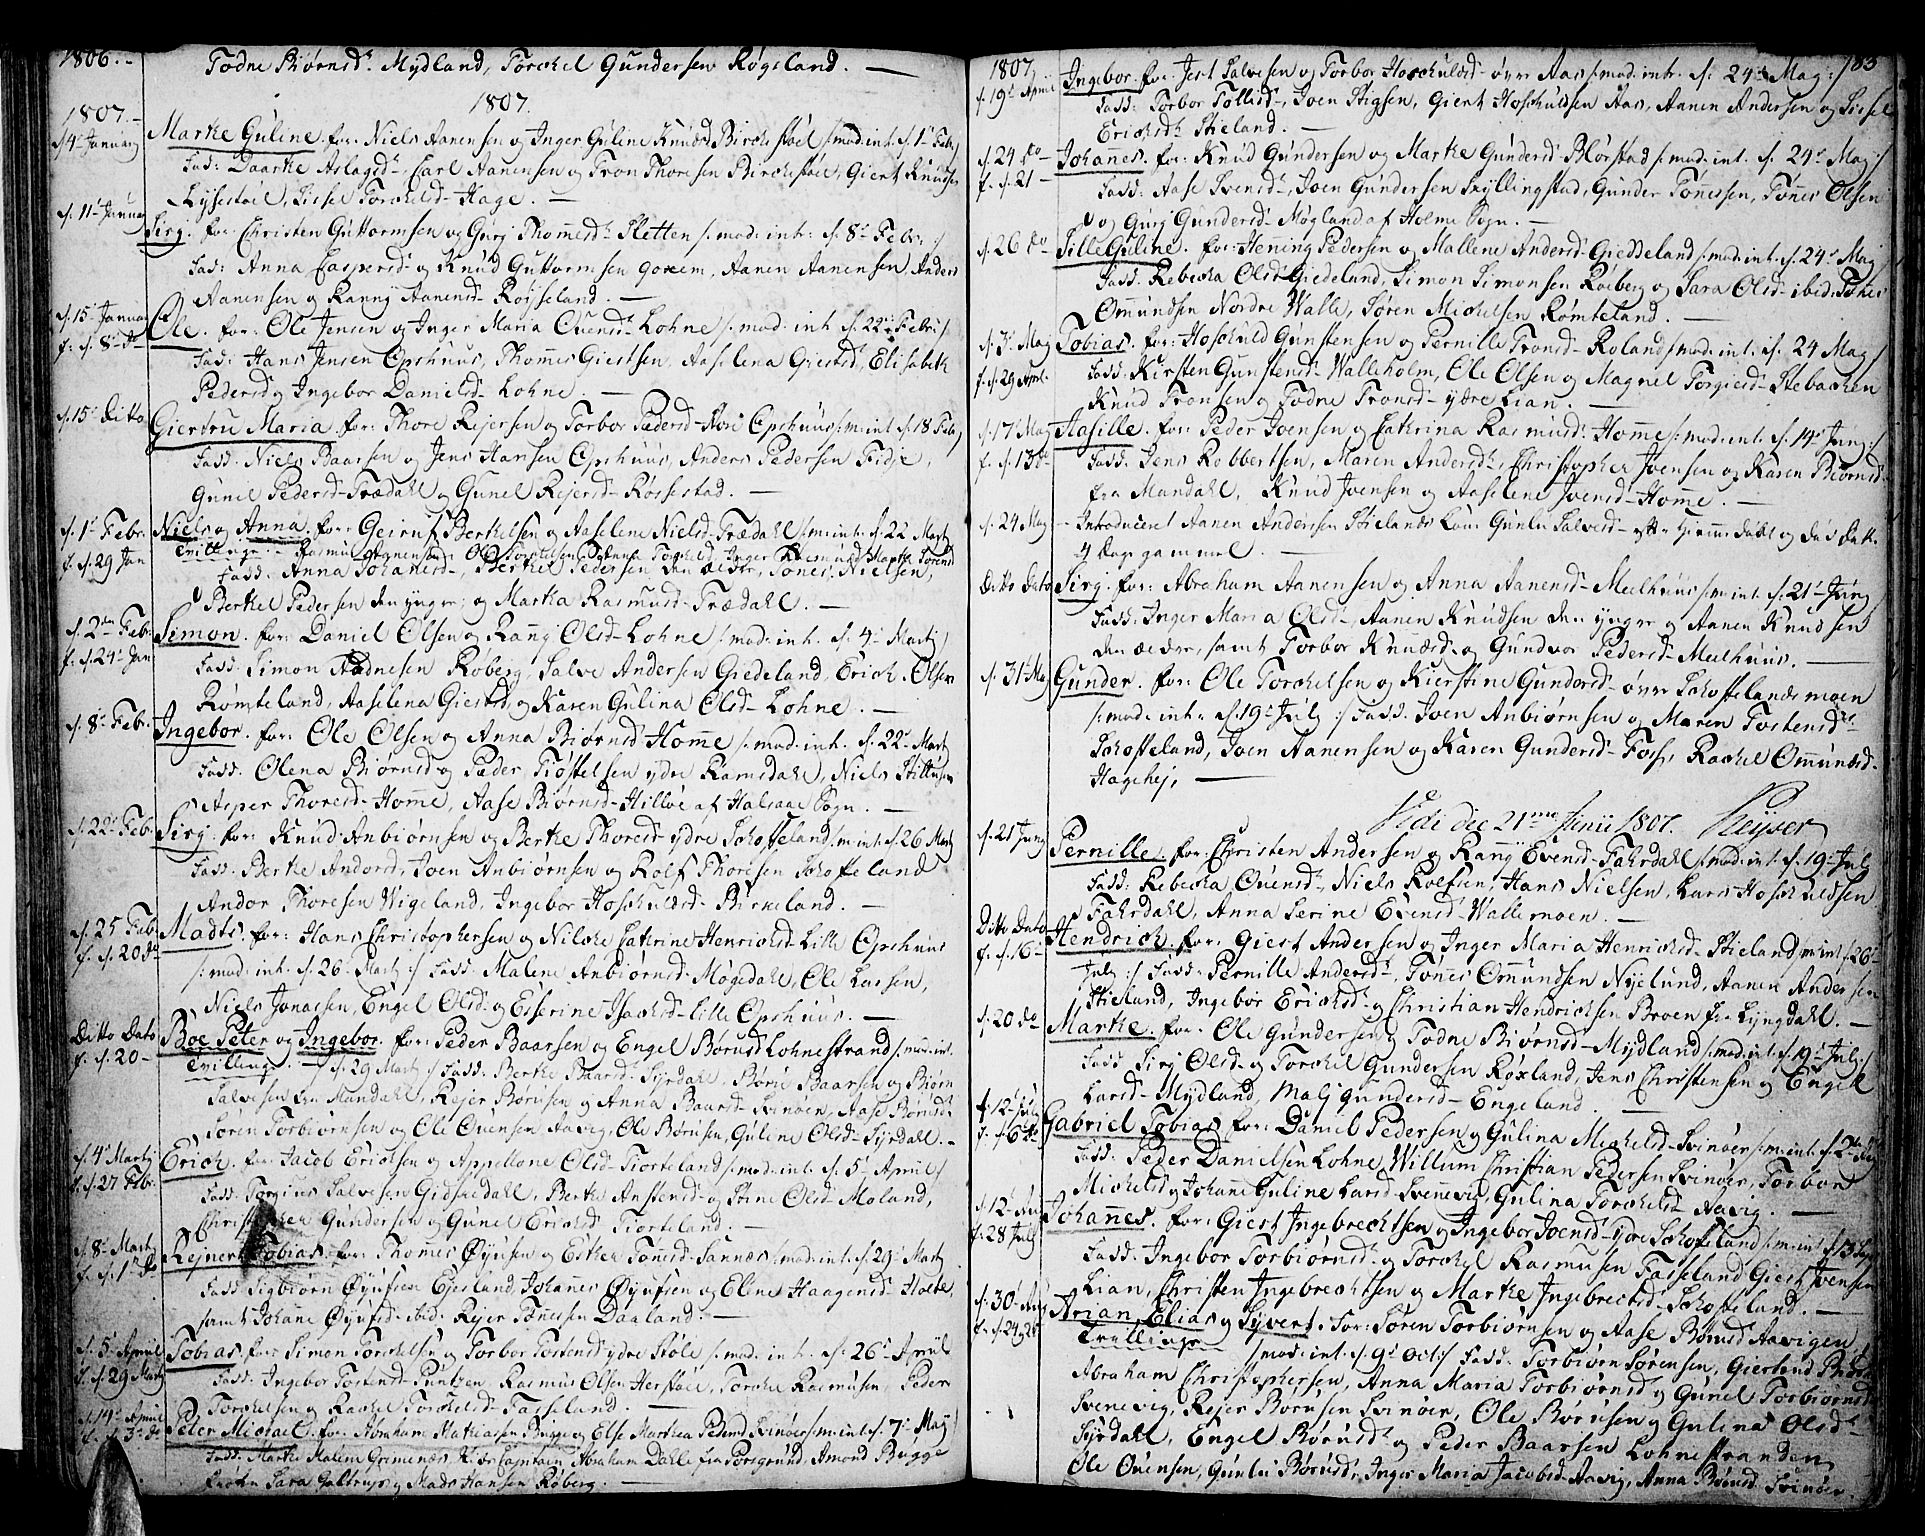 1806.-
Todne Biørnsd. Mydland, Torckel Gundersen Røgeland. —
1807.
1807.-
4de Januarij Marte Guline. for: Niels Aanensen og Inger Guline Knudsd Birchestøel /: mod: int. d. 1te Febr:/
Fad: Daarte Aslagsd-, Carl Aanensen og Tron Thoresen Birchestøel, Giert Knudsen
Lysestøel, Sissel Torckelsd- Hage. —
d. 11te Januar Sirg. for: Christen Guttormsen og Gurj Thommesd- Sletten /: mod: int: d. 8de Febr: :/
Fad: Anna Caspersd- og Knud Guttormsen
Aanensen og Ranny Aanensd- Røysseland. —
d. 15de Januar Ole. for: Ole Jensen og Inger Maria Ouensd- Lohne /: mod: int. d. 22de Febr:/
f. d. 8de do
Fad: Hans Jensen Opshuus, Thomes Giertsen, Aaselena Giertsd, Elisabeth
Pedersd og Ingebor Danielsd- Lohne —
d. 15de ditto Giertru Maria. for: Thore Rejersen og Torbor Pedersd- Opshuus /: m: int. d. 18 Febr/
Fadd: Niels Baarsen og Jens Hansen Opshuus, Anders Pedersen Fidje,
Gunil Pedersd- Trædahl og Gunel Rejersd- Røssestad. —
d. 1te Febr. Niels og Anna. for: Geiruf Bertelsen og Aaselene Nielsd- Trædahl /: m: int: d. 22 Marty
f. d. 29 Jan Tvillinge
Fadd: Anna Johanesd-, Bertel Pedersen den ældre, Tønes Nielsen,
Bertel Pedersen den yngre, og Marta Rasmusd- Trædahl. —
d. 2den Feb: Simon. for: Daniel Olsen og Ranj Olsd- Lohne /: mod: int. d. 4de Marty
f. d. 24de Jan
Fadd: Simon Aadnesen Røberg, Salve Andersen Giedeland, Erich Olsen
Rømteland, Aaselena Giertsd og Karen Gulina Olsd- Lohne. —
d. 8de Febr. Ingebor. for: Ole Olsen og Anna Biørnsd Homme /: mod: int. d. 22de Marty
Fadd: Olena Biørnsd og Peder Tiøstelsen ydre Ramsdahl, Niels
Asper Thoresd- Homme, Aase Biørnsd- Hilløe af Halsaae Sogn. —
d. 22de Feb. Sirg. for: Knud Anbiørnsen og Berte Thoresd- ydre Schofteland /: m: int: d. 26 Marty
Fadd: Berte Andorsd, Joen Anbiørnsen og Rolf Thoresen Schofteland
Andor Thoresen Wigeland, Ingebor Hoschuldsd- Birkeland. —
d. 25 Feb: Madts. for: Hans Christophersen og Nilske Catrine Henricksd- Lille Opshuus
f. d. 20 do
/: mod: int. d. 26 Marty :/ Fadd: Malene Anbiørnsd- Møgedahl, Ole Larsen,
Niels Jonassen, Engel Olsd- og Esserine Isacksd- Lille Opshuus. —
Ditto Dato Boe Peter og Ingebor. for: Peder Baarsen og Engel Børusd Lohnestrand /: mod: int.
f. d. 20 — Tvillinge. — d. 29 Marty :/ Fadd: Berte Baarsd- Syrdahl, Børu Baarsen og Biørn
Salvesen fra Mandahl, Rejer Børusen og Anna Baarsd- Svinøer, Aase Børusd-
Søren Torbiørnsen og Ole Ouensen Aavig, Ole Børusen, Guline Olsd- Syrdahl. —
d. 4de Marty Erich. for: Jacob Erichsen og Appellone Olsd- Tiorteland /: mod: int. d. 5te April/
f. d. 27 Febr.
Fadd: Torgius Salvesen Gidskedahl, Berte Anstensd- og Stine Olsd- Moland,
Christopher Gundersen og Gunel Erichsd Tiorteland. —
d. 8de Marty Rejnert Tobias. for: Thomes Øyufsen og Ester Tønesd- Sannæs /: mod: int: d. 29de Marty
f. d. 1te do
Fadd: Sigbiørn Øyufsen Ejesland, Johannes Øyufsen og Elene Haagensd- Holte,
samt Johane Øyufsd- ibid: Rejer Tønesen Daaland. —
d. 5te April Tobias. for: Simon Torckelsen og Torbor Tostensd ydre Støle /: mod: int: d. 26de April
f. d. 29 Marty
Fadd: Ingebor Tostensd- Runtzen, Rasmus Olsen Herstøel, Torckel Rasmusen, Peder
Torckelsen og Rackel Torckelsd- Fasseland. —
d. 14de April Peter Michael. for: Abraham Mathiassen Bugge og Else Marthea Pedersd Svinøer /: m: int: d. 7de Maij
f. d. 3de do
Fadd: Marte Malene Grimenæs, Hr Capitain Abraham Dahle fra Porsgrund, Amond Bugge
Sara Galtrups og Mads Hansen Røberg. —
183
1807.
d. 19de April Ingebor. for: Jest Salvesen og Torbor Hoschuldsd- øvre Aas /: mod: int: d. 24de Maij :/
Fadd: Torbor Tollisd-, Joen Stigsen, Giert Hoschuldsen Aas, Aanen Andersen og Sissel
Ericksd- Stieland. —
d. 24 do Johannes. for: Knud Gundersen og Marte Gundersd- Blørstad /: mod: int. d. 24de Maij :/
f. d. 21 —
Fadd: Aase Svensd-, Joen Gundersen Skyllingstad, Gunder Tønessen, Tønes Olsen
og Gurj Gundersd- Møgland af Holme Sogn. —
d. 26 do Sille Guline. for: Hening Pedersen og Mallene Andersd- Gieddeland /: mod: int. d. 24de Maij/
Fadd: Rebecka Olsd- Giedeland, Simon Simonsen Røeberg og Sara Olsd- ibid:
Omundsen Nordre Walle, Søren Mickelsen Rømteland. —
d. 3de Maij Tobias. for: Hoschuld Gunstensen og Pernille Tronsd- Roland /: mod: int. d. 24 Maij/
f. d. 29 April.
Fadd: Kirsten Gunstensd- Walleholm, Ole Olsen og Magnel Torgiersd- Stebacken
Knud Tronsen og Todne Tronsd- ydre Lian. —
d. 17de Maij Aasille. for: Peder Joensen og Cathrina Rasmusd- Homme /: mod: int. d. 14de Junj :/
f. d. 13de
Fadd: Jens Robbertsen, Maren Andersd-, Christopher Joensen og Karen Biørnsd-
fra Mandahl, Knud Joensen og Aaselene Joensd- Homme. —
d. 24 Maij - Introduceret Aanen Andersen Stielands Kone Gunlu Salvesd-
4 dage gammel. —
Ditto Dato Sirg. for: Abraham Aanensen og Anna Aanensd- Meelhuus /: m: int. d. 21de Junj
Fadd: Inger Maria Olsd-, Aanen Knudsen den yngre og Aanen Knudsen
den ældre, samt Torbor Knudsd- og Gundvor Pedersd- Meelhuus. —
d. 31de Maij Gunder. for: Ole Torckelsen og Kierstine Gundersd- øvre Schoftelandsmoen
/: mod: int: d. 19de Julj :/ Fadd: Joen Anbiørnsen og Maren Tostensd-
Schofteland, Joen Aanensen og Karen Gundersd- Foss, Rackel Omundsd-
Hagehej, —
Vidi die 21me Junii 1807. Keyser
d. 21 Junj Pernille. for: Christen Andersen og Ranj Evensd- Fahrdahl /: mod: int. d. 19de Julj
Fadd: Rebecka Ouensd-, Niels Rolfsen, Hans Nielsen, Lars Hoschuldsen
Fahrdahl, Anna Serine Evensd- Wallemoen. —
Ditto Dato Hendrich. for: Giert Andersen og Inger Maria Henricksd- Stieland /: m: int: d. 26de
f. d. 16 —
Julj :/ Fadd: Pernille Andersd-, Tønes Omundsen Nyelund, Aanen Andersen
Stieland, Ingebor Ericksd- og Christian Hendricksen Broen fra Lyngdahl. —
d. 20 do Marte. for: Ole Gundersen og Todne Biørnsd- Mydland /: mod: int. d. 19de Julj :/
Fadd: Sirj Olsd- og Torckel Gundersen Røxland, Jens Christensen og Engel
Larsd- Mydland, Malj Gundersd- Engeland. —
d. 12 Julj Gabriel Tobias. for: Daniel Pedersen og Gulina Mickelsd- Svinøer /: m: int: d. 2den Aug
f. d. 6te do
Fadd: Peder Danielsen Lohne, Willum Christian Pedersen Svinøer, Torbor
Mickelsd og Johanne Guline Larsd- Svennevig, Gulina Torckelsd- Aavig. —
d. 12te Aug Johannes. for: Giert Ingebrechtsen og Ingebor Joensd- ydre Schofteland /: m: int: d. 13 Sept
f. 28 Julj
Fadd: Ingebor Torbiørnsd- og Torckel Rasmusen Fasseland, Giert Joensen
Lian, Christen Ingebrechtsen og Marte Ingebrechtsd- Schofteland. —
d. 30te Aug Arian Elias og Syvert. for: Søren Torbiørnsen og Aase Børusd Aavigen
f. d. 24 og 26 Tvillinge /: mod: int. d. 9de Oct:/ Fadd: Torbiørn Sørensen, Gierlund
Abraham Christophersen, Anna Maria Torbiørnsd og Gunel Torbiørnsd
Svenevig, Rejer Børusen Svinøer, Ole Børusen og Gulina Olsd-
Syrdahl, Engel Børusd- og Peder Baarsen Lohnestranden
Ole Ouensen, Gunlu Børusd-, Inger Maria Jacobsd- Aavig, Anna Børusd Svinøer.